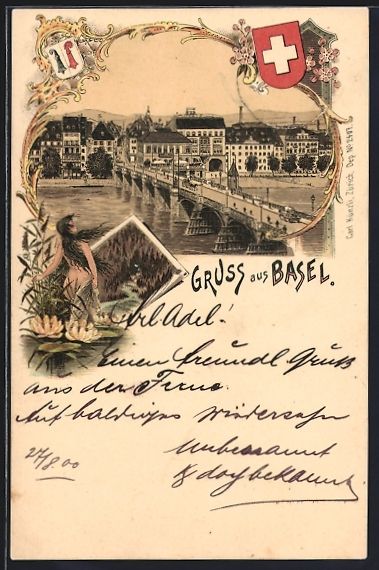 GRUSS aus BASEL.
Frl Adel!
Einen freundl Gruß
aus der Ferne.
Auf baldiges Wiedersehn
Unbekannt
& doch bekannt
27/8.00
Carl Künzli, Zürich. Dep. No